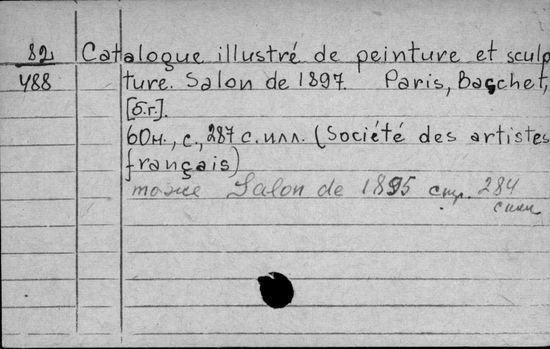 82 Catalogue illustré de peinture et sculp
488 ture. Salon de 1897. Paris, Basçhet,
[б.г.].
60н., с., 287 с. илл. (Société des artistes
français)
тоже Salon de 1895 стр. 284
с илл